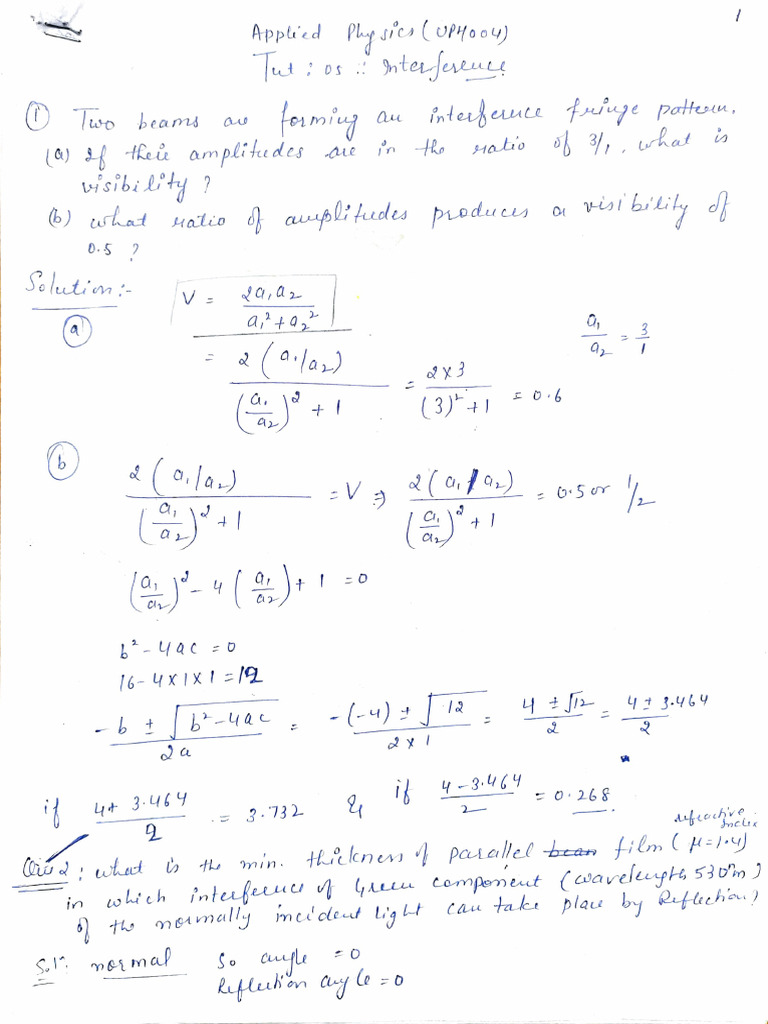 1
Applied Physics (UPH004)
Tut : 05 :: Interference
① Two beams are forming an interference fringe pattern.
(a) If their amplitudes are in the ratio of 3/1, what is
visibility ?
(b) what ratio of amplitudes produces a visibility of
0.5 ?
Solution:-
ⓐ V = 2a₁a₂ / a₁²+a₂²
a₁/a₂ = 3/1
= 2(a₁/a₂) / (a₁/a₂)² + 1 = 2×3 / (3)²+1 = 0.6
ⓑ 2(a₁/a₂) / (a₁/a₂)² + 1 = V ⇒ 2(a₁/a₂) / (a₁/a₂)² + 1 = 0.5 or 1/2
(a₁/a₂)² - 4(a₁/a₂) + 1 = 0
b² - 4ac = 0
16 - 4×1×1 = 12
-b ± √b²-4ac / 2a = -(-4) ± √12 / 2×1 = 4 ± √12 / 2 = 4 ± 3.464 / 2
if 4+3.464 / 2 = 3.732 & if 4-3.464 / 2 = 0.268
refractive index
Que 2 : what is the min. thickness of parallel film (μ=1.4)
in which interference of Green component (wavelength 530nm)
of the normally incident light can take place by Reflection?
Sol: normal So angle = 0
Reflection angle = 0